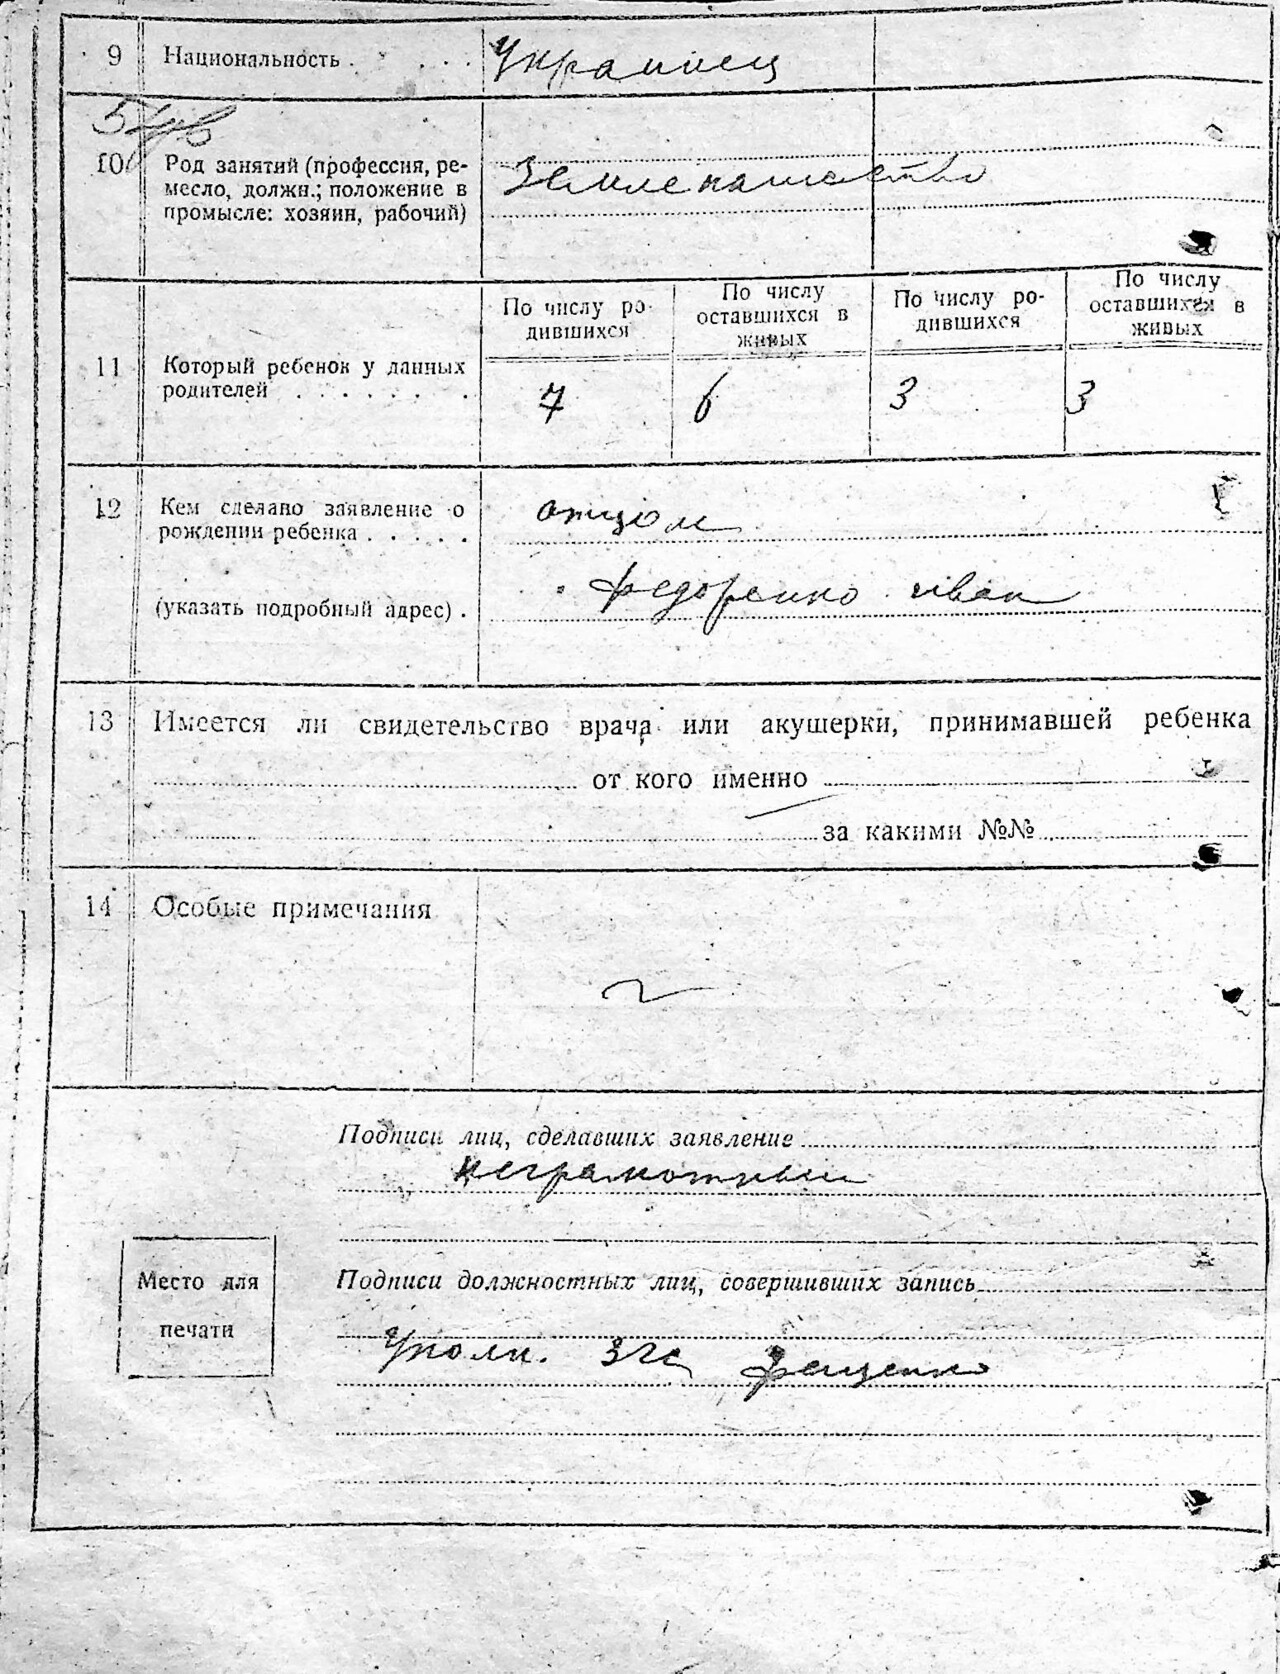 9 Национальность . . . . Украинец
10 Род занятий (профессия, ре-
месло, должн.; положение в
промысле: хозяин, рабочий)
Землепашество
11 Который ребенок у данных
родителей . . . . . . .
По числу ро-
дившихся
По числу
оставшихся в
живых
По числу ро-
дившихся
По числу
оставшихся в
живых
7 6 3 3
12 Кем сделано заявление о
рождении ребенка . . . . .
отцом
(указать подробный адрес) .
Федоренко иван
13 Имеется ли свидетельство врача или акушерки, принимавшей ребенка
от кого именно
за какими №№
14 Особые примечания
Подписи лиц, сделавших заявление
неграмотный
Место для
печати
Подписи должностных лиц, совершивших запись
Уполн. Загс